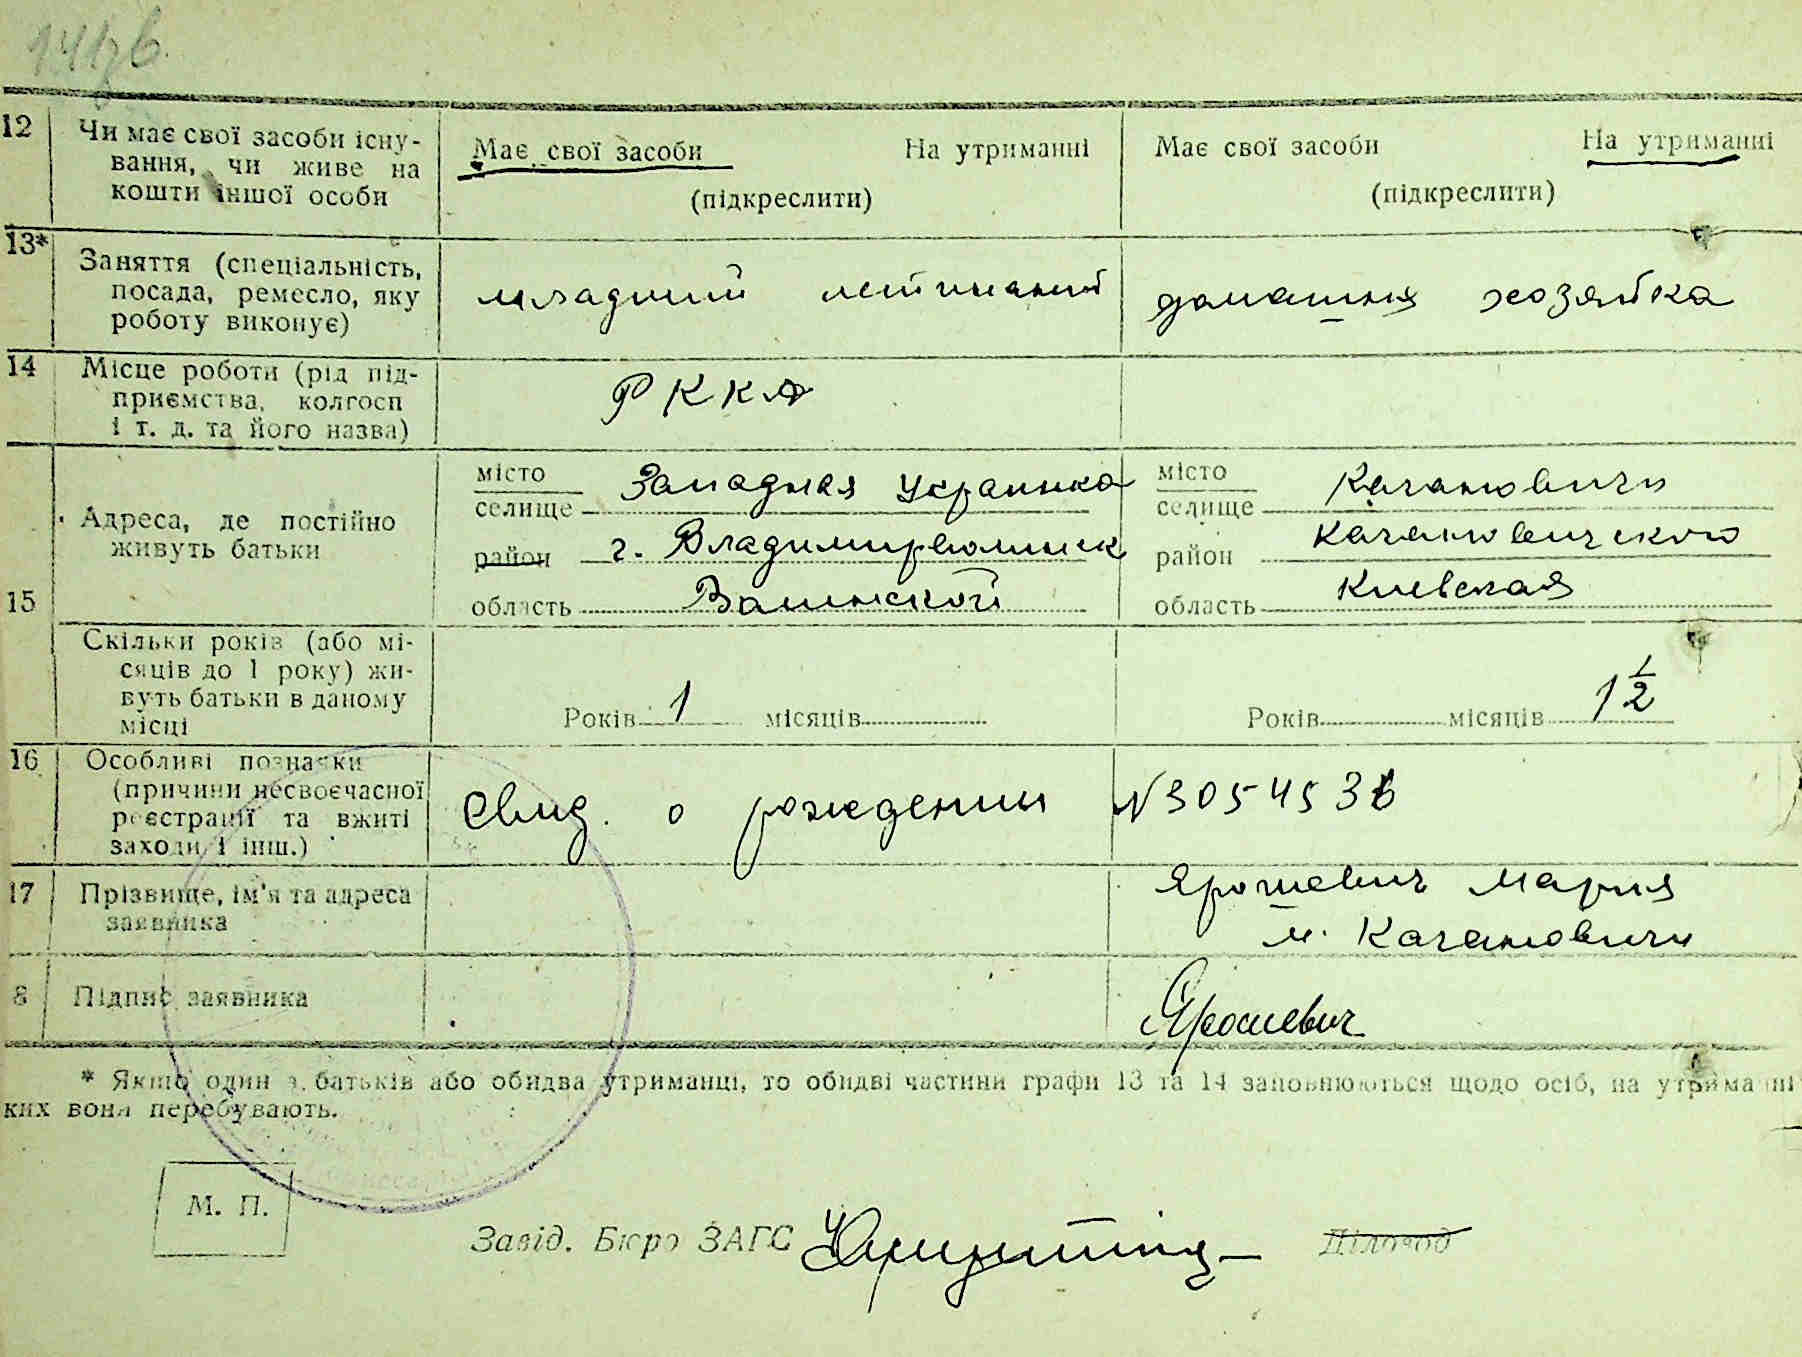 12 Чи має свої засоби існу-
вання, чи живе на
кошти іншої особи
Має свої засоби На утриманні
(підкреслити)
Має свої засоби На утриманні
(підкреслити)
13* Заняття (спеціальність,
посада, ремесло, яку
роботу виконує)
младший
домашня хозяйка
14 Місце роботи (рід під-
приємства, колгосп
і т. д. та його назва)
РККА
15
Адреса, де постійно
живуть батьки
місто
селище
Западная Украинка
район г. Владимирволинск
область Валинской
місто
селище
Качановичи
район Качановичского
область Киевская
Скільки років (або мі-
сяців до 1 року) жи-
вуть батьки в даному
місці
Років 1 місяців
Років місяців 1 1/2
16 Особливі позначки
(причини несвоєчасної
реєстрації та вжиті
заходи і інш.)
Свид. о рождении №305453
17 Прізвище, ім'я та адреса
заявника
Ярошевич Мария
м. Качановичи
8 Підпис заявника
Ярошевич
* Якщо один з батьків або обидва утриманці, то обидві частини графи 13 та 14 заповнюються щодо осіб, на утриманні
ких вони перебувають.
М. П.
Завід. Бюро ЗАГС
Діловод